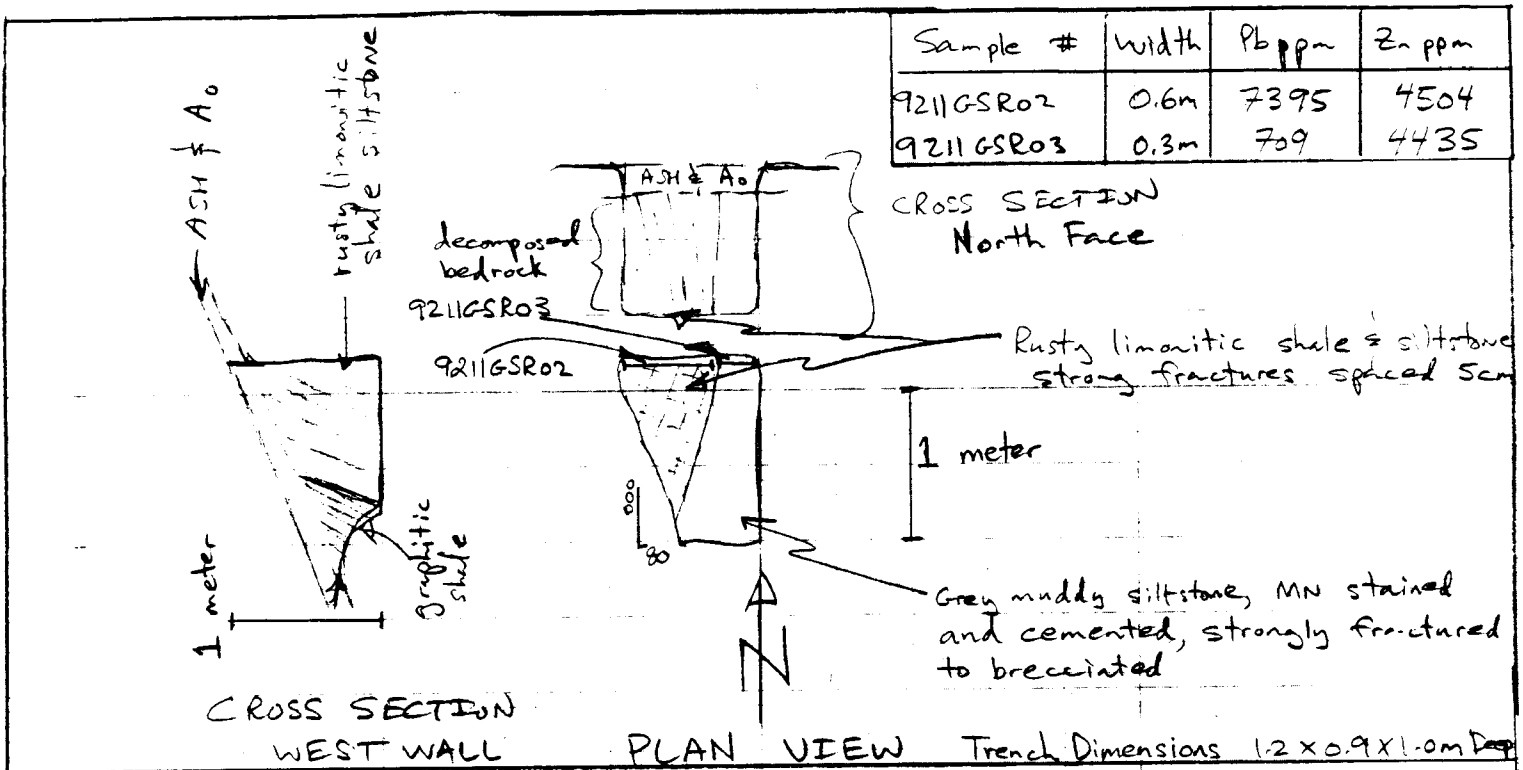 Sample # Width Pb ppm Zn ppm
9211GSR02 0.6m 7395 4504
9211GSR03 0.3m 709 4435
ASH & A₀
rusty limonitic
shale siltstone
ASH & A₀
CROSS SECTION
North Face
decomposed
bedrock
9211GSR03
9211GSR02
Rusty limonitic shale & siltstone
strong fractures spaced 5cm
1 meter
000
80
graphitic
shale
1 meter
Grey muddy siltstone, MN stained
and cemented, strongly fractured
to brecciated
N
CROSS SECTION
WEST WALL
PLAN VIEW
Trench Dimensions 1.2 x 0.9 x 1.0m Deep